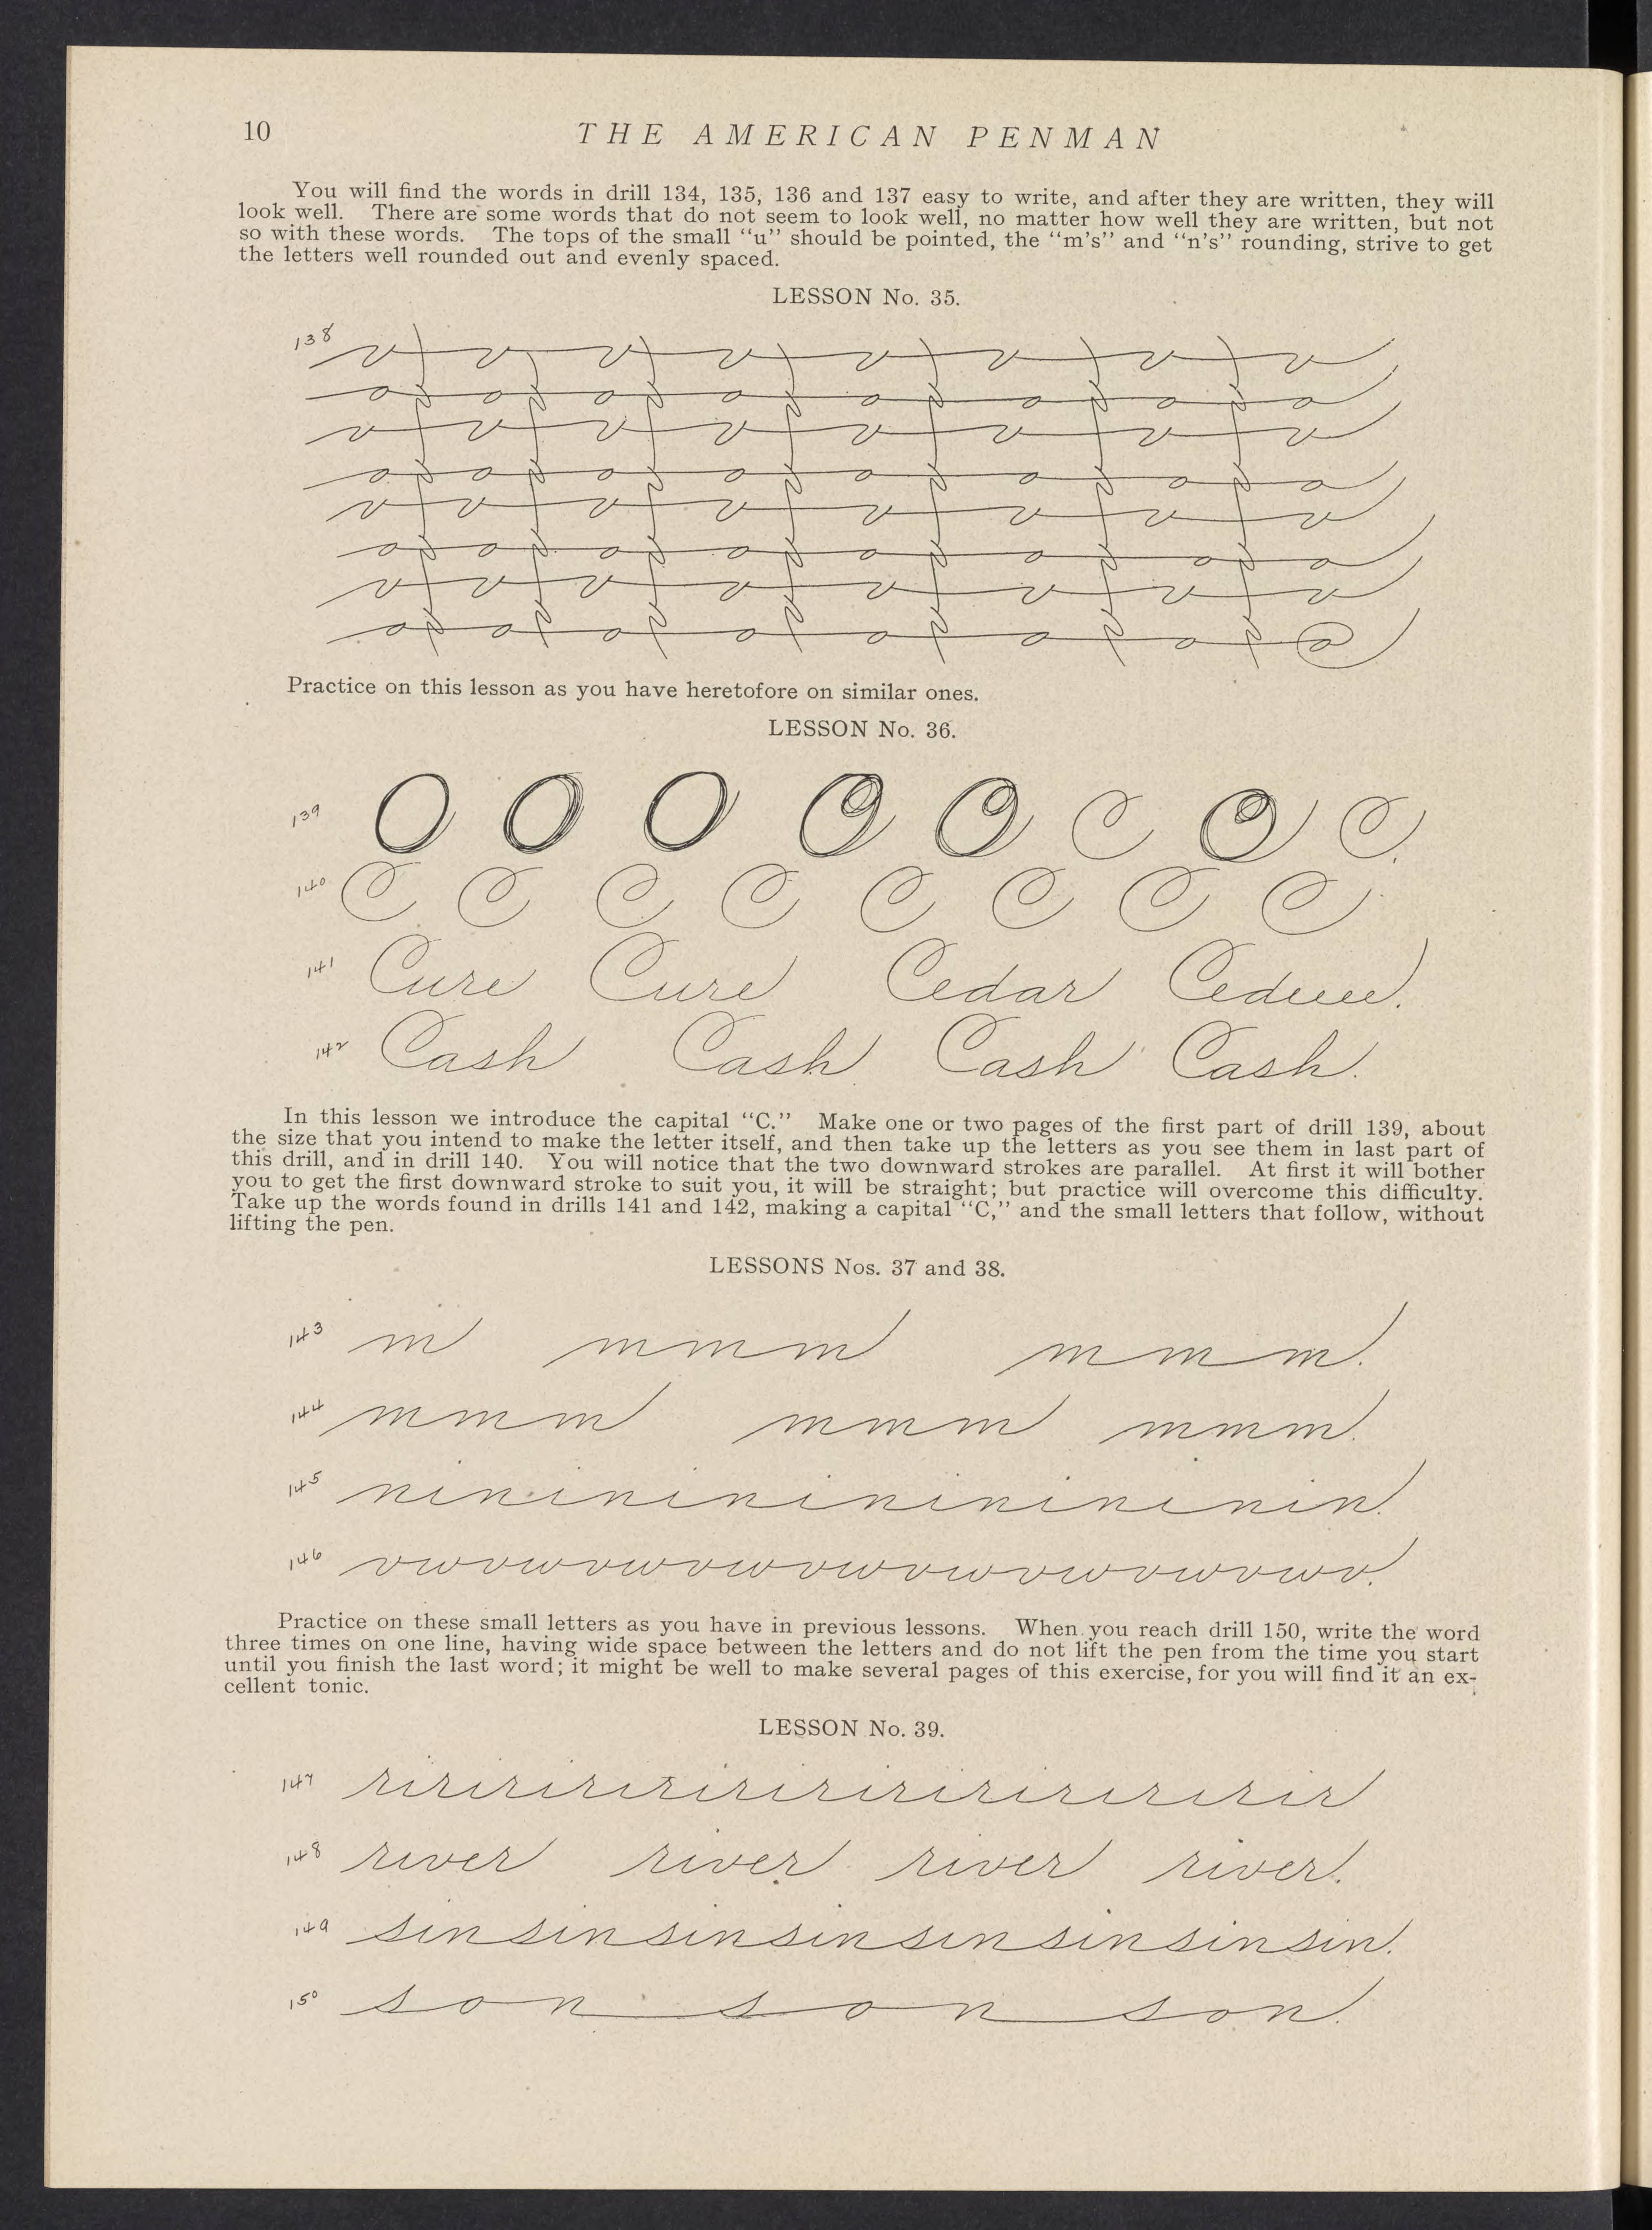 10
THE AMERICAN PENMAN
You will find the words in drill 134, 135, 136 and 137 easy to write, and after they are written, they will
look well. There are some words that do not seem to look well, no matter how well they are written, but not
so with these words. The tops of the small "u" should be pointed, the "m's" and "n's" rounding, strive to get
the letters well rounded out and evenly spaced.
LESSON No. 35.
138
Practice on this lesson as you have heretofore on similar ones.
LESSON No. 36.
139 O O O O O C O C
140 C C C C C C C C
141 Cure Cure Cedar
142 Cash Cash Cash Cash.
In this lesson we introduce the capital "C." Make one or two pages of the first part of drill 139, about
the size that you intend to make the letter itself, and then take up the letters as you see them in last part of
this drill, and in drill 140. You will notice that the two downward strokes are parallel. At first it will bother
you to get the first downward stroke to suit you, it will be straight; but practice will overcome this difficulty.
Take up the words found in drills 141 and 142, making a capital "C," and the small letters that follow, without
lifting the pen.
LESSONS Nos. 37 and 38.
143 m mmm mmm.
144 mmm mmm mmm.
145 nininininininininin.
146 vwvwvwvwvwvwvwvwv.
Practice on these small letters as you have in previous lessons. When you reach drill 150, write the word
three times on one line, having wide space between the letters and do not lift the pen from the time you start
until you finish the last word; it might be well to make several pages of this exercise, for you will find it an ex-
cellent tonic.
LESSON No. 39.
147 riririririririririr
148 river river river river.
149 sinsinsinsinsinsinsinsin.
150 son son son.